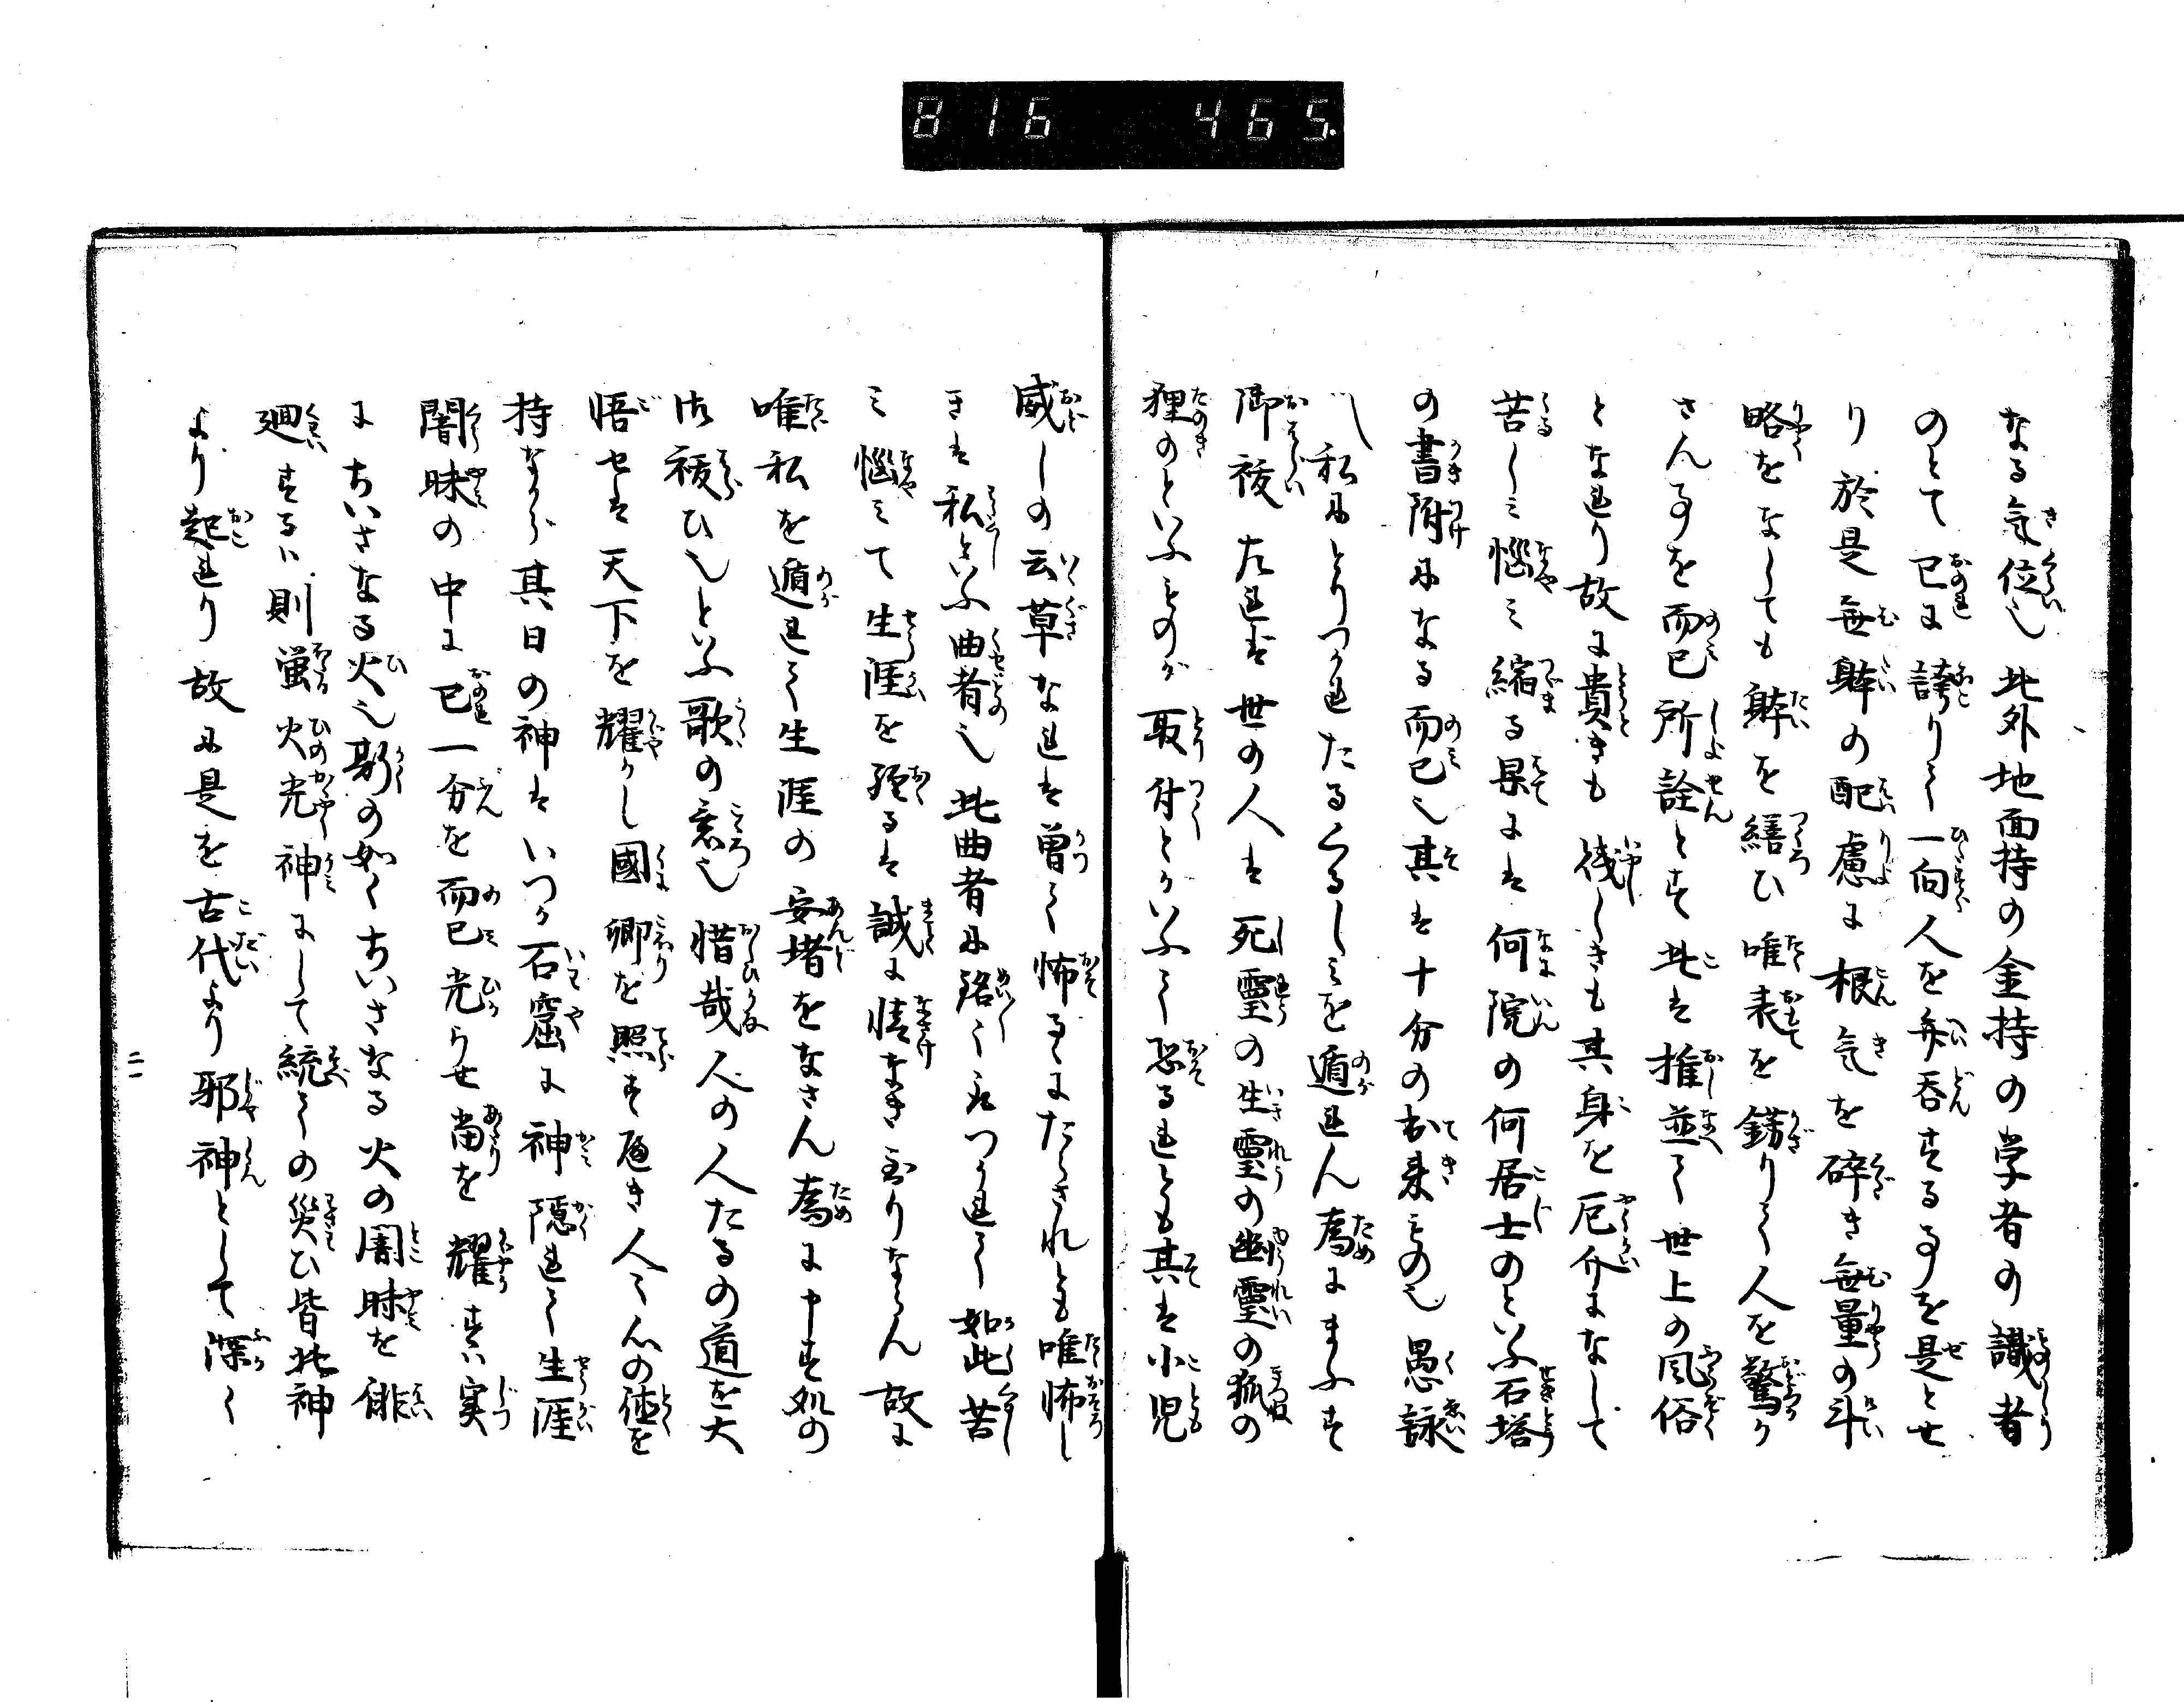 816 465.
なる気位也此外地面持の金持の学者の識者
のとて己に誇りて一向人を弁呑する事を是とせ
り於是無躰の配慮に根気を砕き無量の斗
略をなしても躰を繕ひ唯表を錺りて人を驚か
さん事を而已所詮とす此は推並て世上の風俗
となれり故に貴きも賎しきも其身を厄介になして
苦しミ悩ミ縮る果には何院の何居士のといふ石塔
の書附になる而已也其は十分の出来もの也愚詠
私にとりつかれたるくるしミを遁れん為にまふす
御祓たれは世の人は死霊の生霊の幽霊の狐の
狸のといふものが取付とかいふて恐るれとも其は小児
威しの云草なれは曽て怖るゝにたらされとも唯怖し
きは私といふ曲者也此曲者に繞ミ付かれて如此苦
ミ悩ミて生涯を経るは誠に情なき至りならん故に
唯私を遁れて生涯の安堵をなさん為に中す処の
御祓ひ也といふ歌の意也惜哉人の人たるの道を大
悟せは天下を耀かし國郷を照す可き人々心の徳を
持ながら其日の神はいつか石窟に神隠れて生涯
闇昧の中に己一分を而已光らせ當を耀すハ実
にちいさなる火也斯の如くちいさなる火の闇昧を俳
廻するハ則蛍火光神にして統ての災ひ皆此神
より起れり故に是を古代より邪神として深く
二